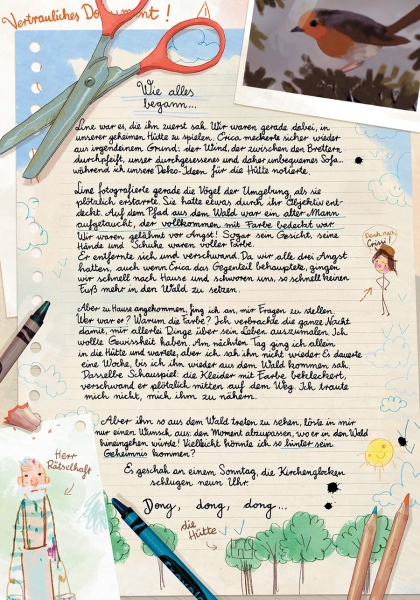 Vertrauliches Dokument !
Wie alles
begann...
Line war es, die ihn zuerst sah. Wir waren gerade dabei, in
unserer geheimen Hütte zu spielen. Erica meckerte sicher wieder
aus irgendeinem Grund: der Wind, der zwischen den Brettern
durchpfeift, unser durchgesessenes und daher unbequemes Sofa...
während ich unsere Deko-Ideen für die Hütte notierte.
Line fotografierte gerade die Vögel der Umgebung, als sie
plötzlich erstarrte. Sie hatte etwas durch ihr Objektiv ent-
deckt. Auf dem Pfad aus dem Wald war ein alter Mann
aufgetaucht, der vollkommen mit Farbe bedeckt war.
Wir waren gelähmt vor Angst! Sogar sein Gesicht, seine
Hände und Schuhe waren voller Farbe.
Er entfernte sich und verschwand. Da wir alle drei Angst
hatten, auch wenn Erica das Gegenteil behauptete, gingen
wir schnell nach Hause und schworen uns, so schnell keinen
Fuß mehr in den Wald zu setzen.
Denk nach,
Crissi
Aber zu Hause angekommen, fing ich an, mir Fragen zu stellen.
Wer war er? Warum die Farbe? Ich verbrachte die ganze Nacht
damit, mir allerlei Dinge über sein Leben auszumalen. Ich
wollte Gewissheit haben. Am nächsten Tag ging ich allein
in die Hütte und wartete, aber ich sah ihn nicht wieder. Es dauerte
eine Woche, bis ich ihn wieder aus dem Wald kommen sah.
Dasselbe Schauspiel: die Kleider mit Farbe bekleckert,
verschwand er plötzlich mitten auf dem Weg. Ich traute
mich nicht, mich ihm zu nähern.
Aber ihn so aus dem Wald treten zu sehen, löste in mir
nur einen Wunsch aus: den Moment abzupassen, wo er in den Wald
hineingehen würde! Vielleicht könnte ich so hinter sein
Geheimnis kommen?
Es geschah an einem Sonntag, die Kirchenglocken
schlugen neun Uhr.
Dong, dong, dong...
Herr
Rätselhaft
die
Hütte